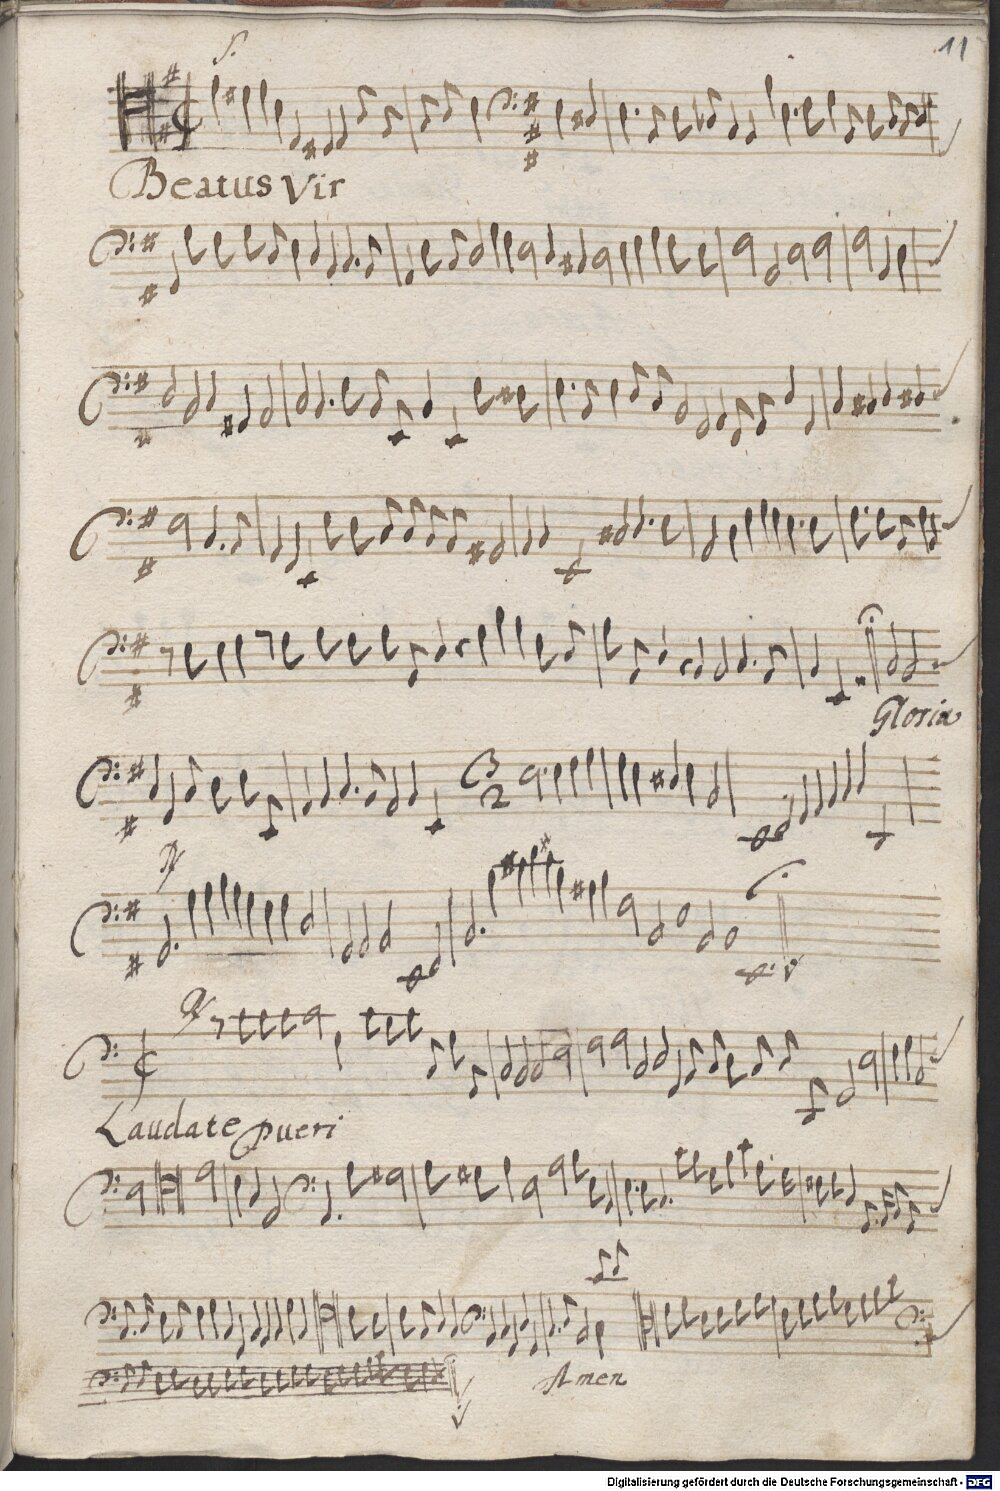 11
S.
Beatus Vir
Gloria
3
2
Laudate pueri
Amen
Digitalisierung gefördert durch die Deutsche Forschungsgemeinschaft - DFG